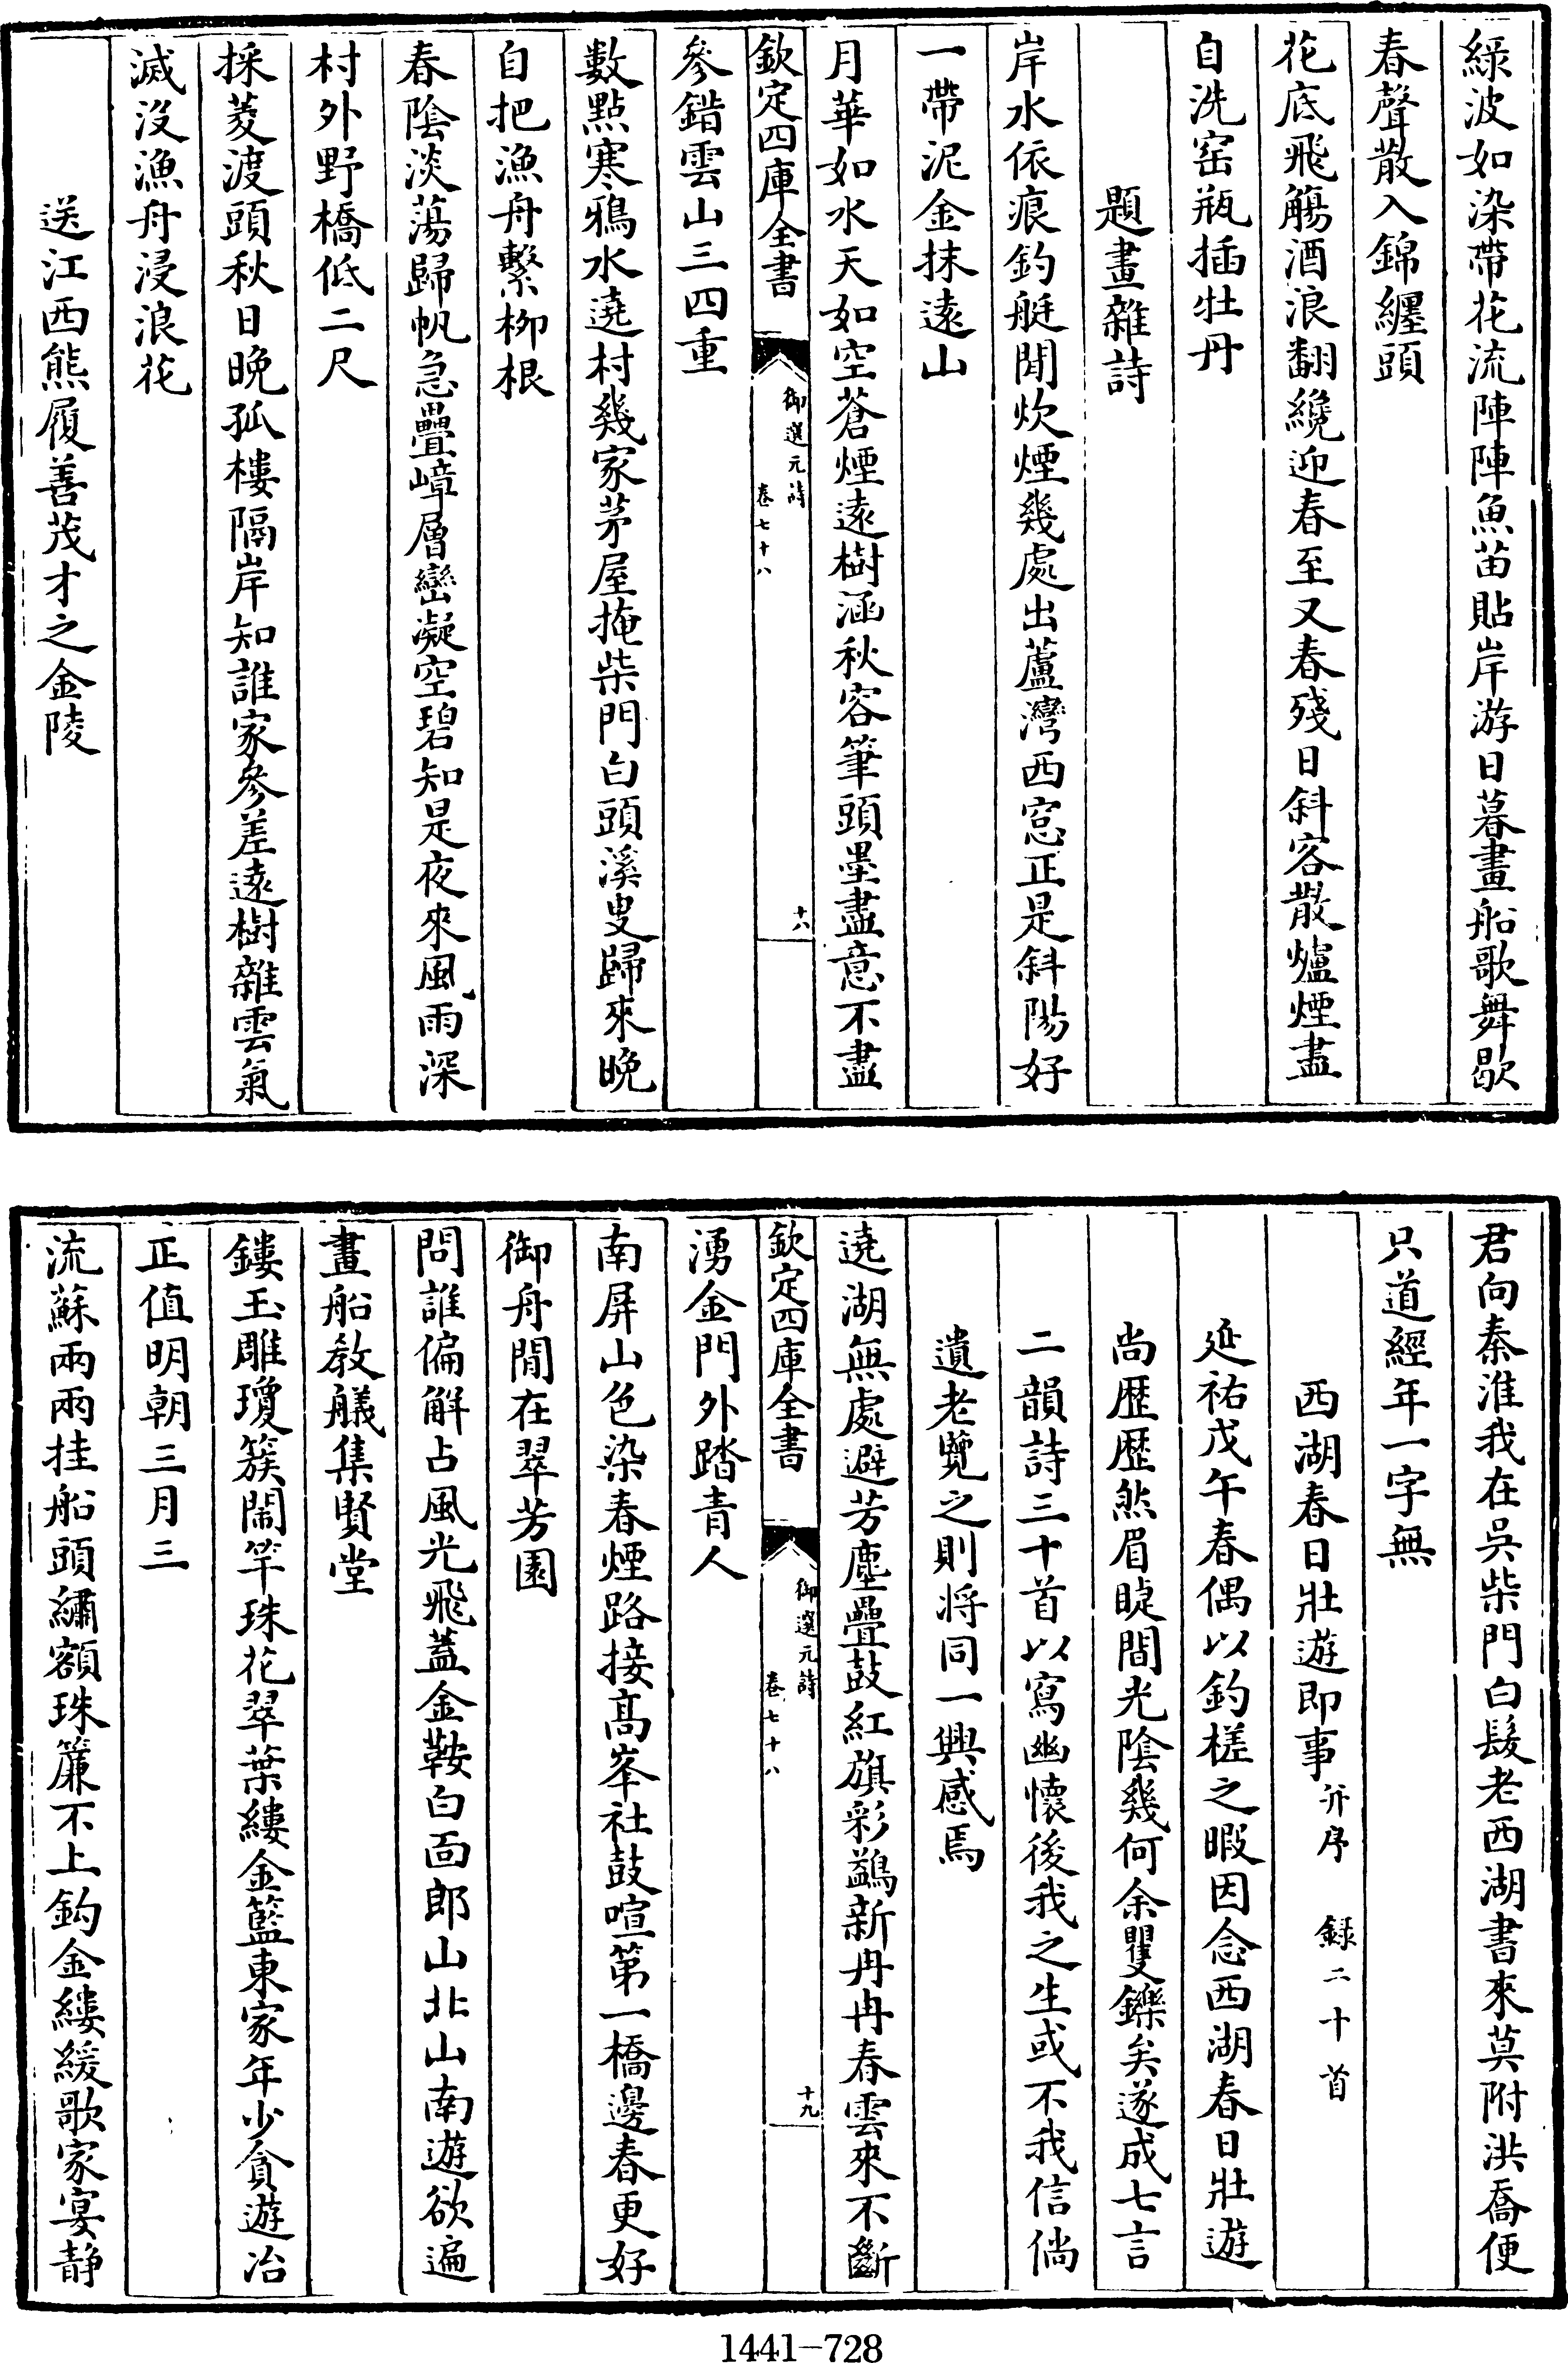 綠波如染帶花流陣陣魚苗貼岸游日暮畫船歌舞歇
春聲散入錦纏頭
花底飛觴酒浪翻纔迎春至又春殘日斜客散爐煙盡
自洗窑瓶插牡丹
題畫雜詩
岸水依痕釣艇閒炊煙幾處出蘆灣西窓正是斜陽好
一帶泥金抹遠山
月華如水天如空蒼煙遠樹涵秋容筆頭墨盡意不盡
欽定四庫全書
御選元詩
卷七十八
十八
參錯雲山三四重
數點寒鴉水遶村幾家茅屋掩柴門白頭溪叟歸來晚
自把漁舟繫栁根
春陰淡蕩歸帆急疊嶂層巒凝空碧知是夜來風雨深
村外野橋低二尺
採菱渡頭秋日晚孤樓隔岸知誰家參差遠樹雜雲氣
滅沒漁舟浸浪花
送江西熊履善茂才之金陵
君向秦淮我在吳柴門白髮老西湖書來莫附洪喬便
只道經年一字無
西湖春日壯遊即事 并序 録二十首
延祐戊午春偶以釣槎之暇因念西湖春日壯遊
尚歴歴然眉睫間光陰幾何余矍鑠矣遂成七言
二韻詩三十首以寫幽懷後我之生或不我信倘
遺老覽之則將同一興感焉
遶湖無處避芳塵疊鼓紅旗彩鷁新冉冉春雲來不斷
欽定四庫全書
御選元詩
卷七十八
十九
湧金門外踏青人
南屏山色染春煙路接髙峯社鼓喧第一橋邊春更好
御舟閒在翠芳園
問誰偏解占風光飛蓋金鞍白面郎山北山南遊欲遍
畫船教艤集賢堂
鏤玉雕瓊簇鬧竿珠花翠葉縷金籃東家年少貪遊冶
正值明朝三月三
流蘇兩兩挂船頭繡額珠簾不上鈎金縷緩歌家宴静
1441-728